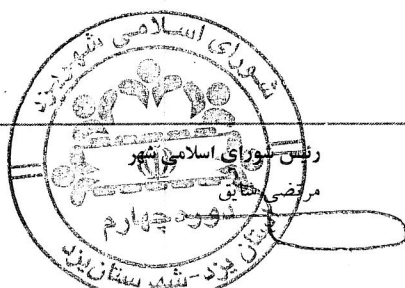 شورای اسلامی شهر یزد
رئیس شورای اسلامی شهر
مرتضی شایق
دوره چهارم
استان یزد-شهرستان یزد